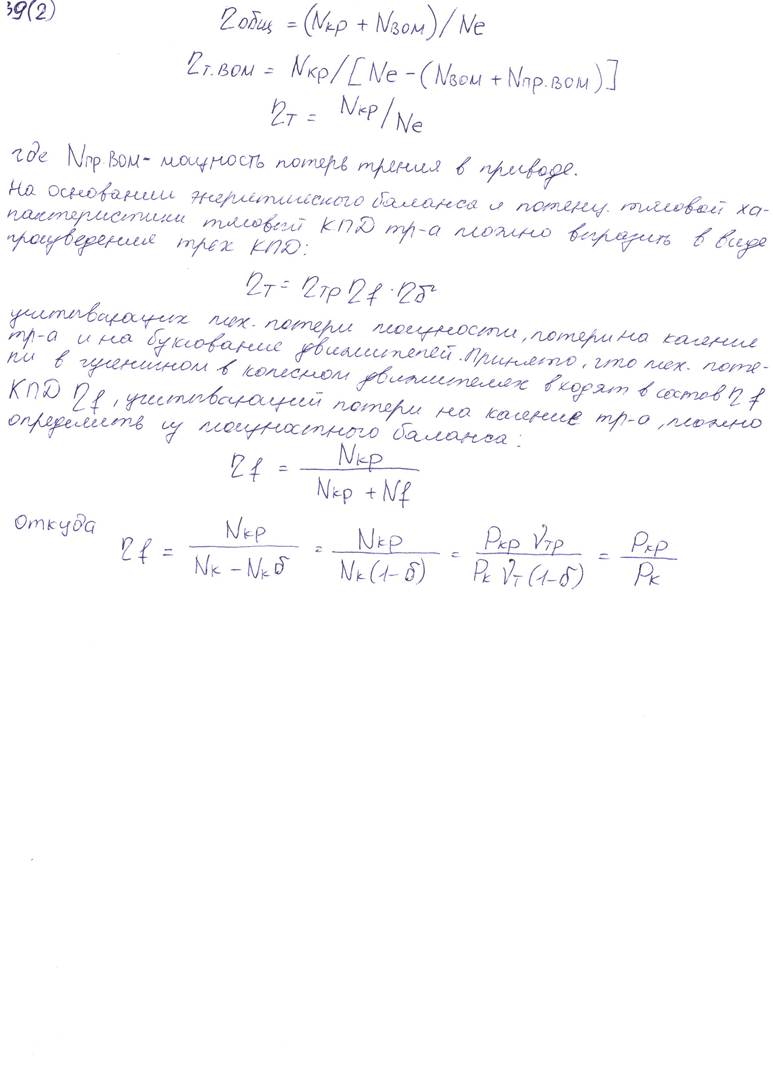 39(2)
ηобщ = (Nкр + Nвом)/Ne
ηт.вом = Nкр/[Ne-(Nвом + Nпр.вом)]
ηт = Nкр/Ne
где Nпр вом - мощность потерь трения в приводе.
На основании энергетического баланса и потенц. тяговой ха-
рактеристики тяговый КПД тр-а можно выразить в виде
произведения трех КПД:
ηт = ηтр ηf · ηδ
учитывающих мех. потери мощности, потери на качение
тр-а и на буксование движителей. Принято, что мех. поте-
ри в гусеничном в колесном движителях входят в состав ηf
КПД ηf, учитывающий потери на качение тр-а, можно
определить из мощностного баланса:
ηf = Nкр / (Nкр + Nf)
Откуда
ηf = Nкр / (Nк - Nк δ) = Nкр / (Nк (1-δ)) = Pкр Vтр / (Pк Vт (1-δ)) = Pкр / Pк